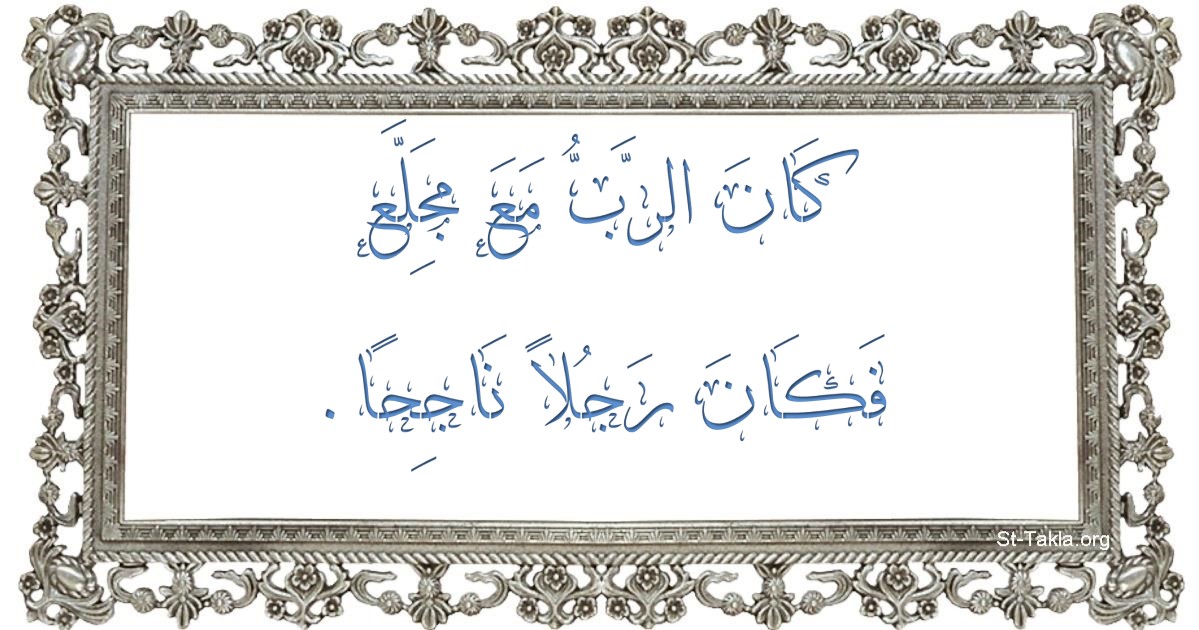 كَانَ الرَّبُّ مَعَ مجِلَّع
فَكَانَ رَجُلاً نَاجِحًا .
St-Takla.org